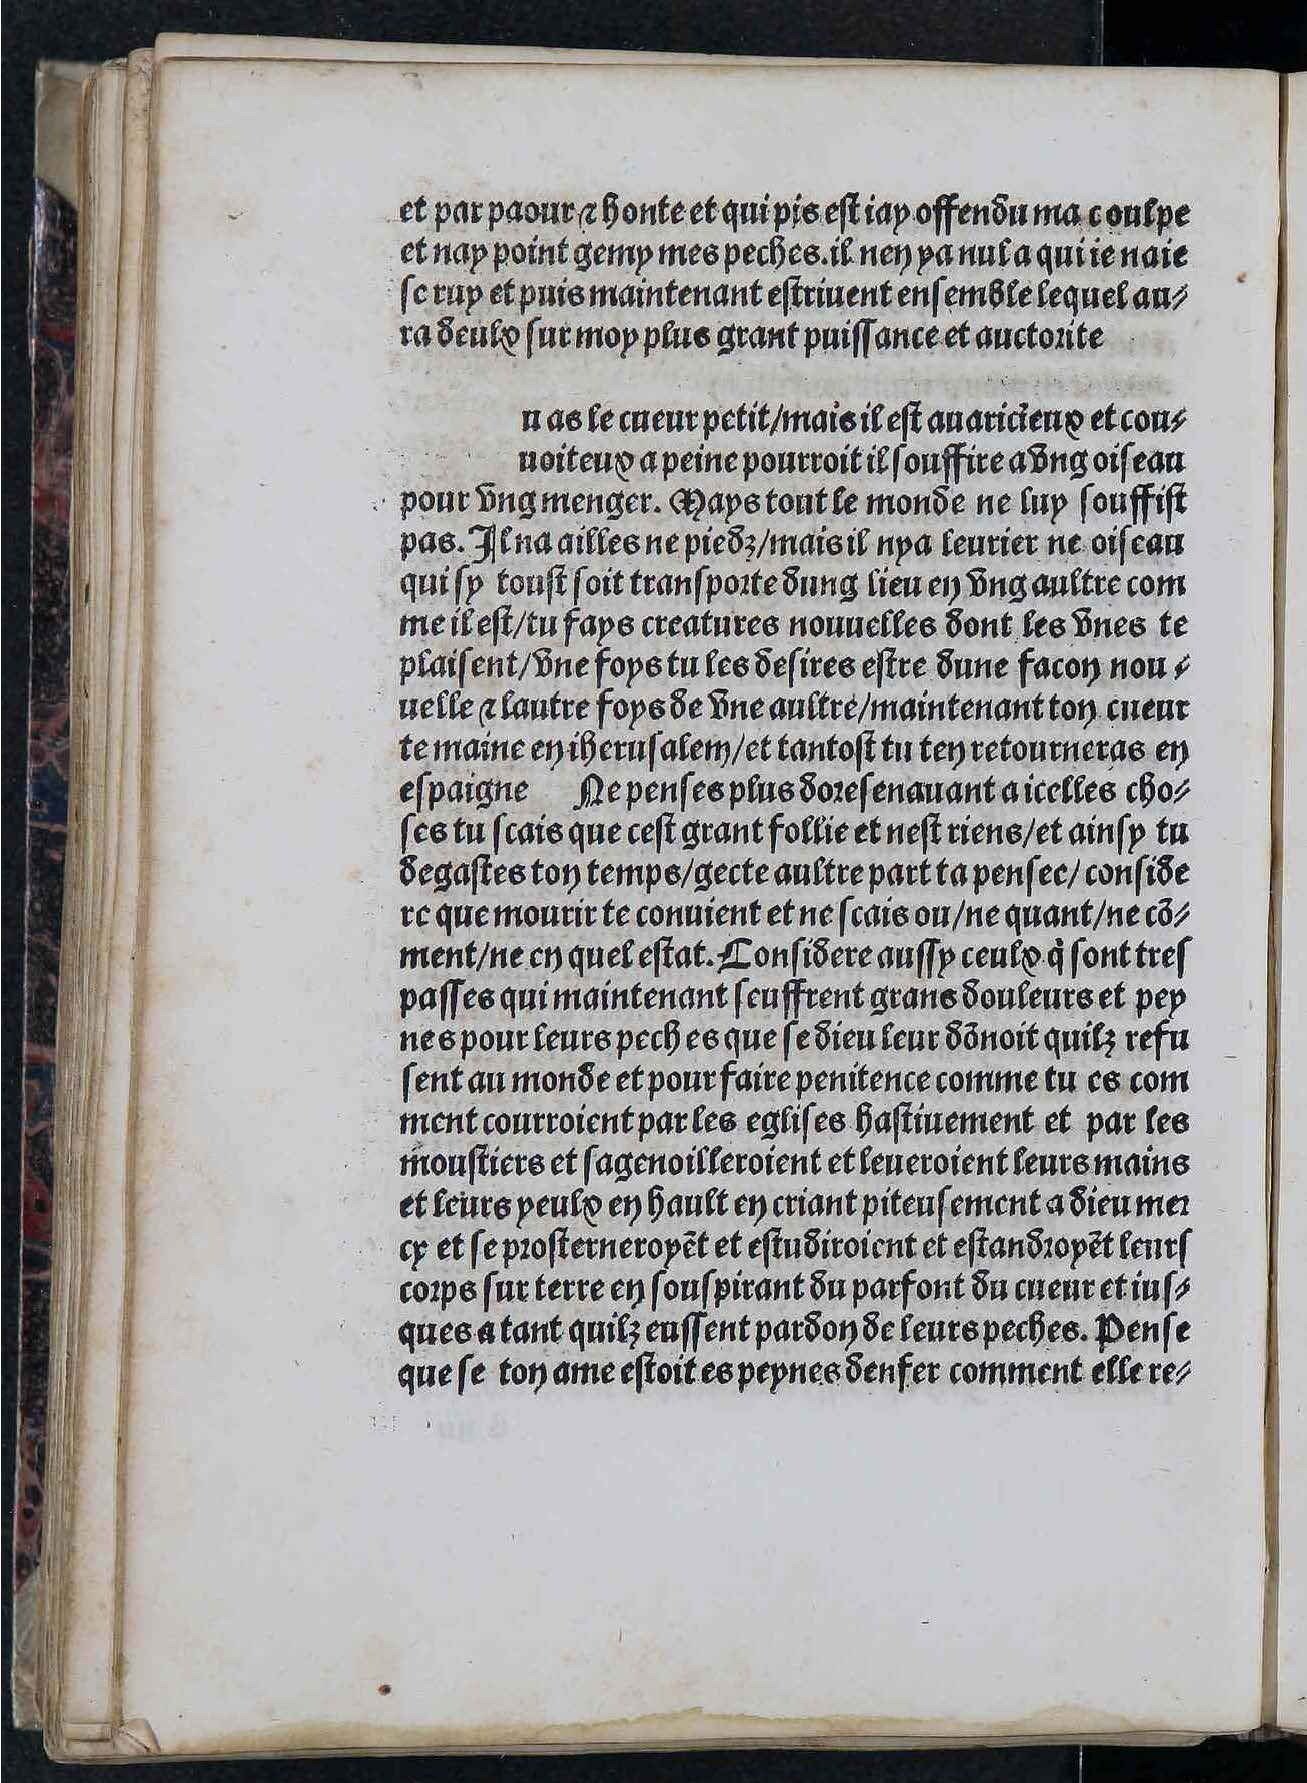 et par paour ⁊ honte et qui pis est iay offendu ma coulpe
et nay point gemy mes peches. il nen ya nul a qui ie naie
seruy et puis maintenant estriuent ensemble lequel au⸗
ra deulx sur moy plus grant puissance et auctorite
u as le cueur petit/mais il est auaricieux et cou⸗
uoiteux a peine pourroit il souffire a vng oiseau
pour vng menger. Mays tout le monde ne luy souffist
pas. Il na ailles ne piedz/mais il nya leurier ne oiseau
qui sy toust soit transporte dung lieu en vng aultre com
me il est/tu fays creatures nouuelles dont les vnes te
plaisent/vne foys tu les desires estre dune facon nou⸗
uelle ⁊ lautre foys de vne aultre/maintenant ton cueur
te maine en iherusalem/et tantost tu ten retourneras en
espaigne Ne penses plus doresenauant a icelles cho⸗
ses tu scais que cest grant follie et nest riens/et ainsy tu
degastes ton temps/gecte aultre part ta pensee/ conside
re que mourir te conuient et ne scais ou/ne quant/ne cō⸗
ment/ne en quel estat. Considere aussy ceulx q̇ sont tres
passes qui maintenant seuffrent grans douleurs et pey
nes pour leurs peches que se dieu leur dōnoit quilz refu
sent au monde et pour faire penitence comme tu es com
ment courroient par les eglises hastiuement et par les
moustiers et sagenoilleroient et leueroient leurs mains
et leurs yeulx en hault en criant piteusement a dieu mer
cy et se prosterneroyēt et estudiroient et estandroyēt leurs
corps sur terre en souspirant du parfont du cueur et ius⸗
ques a tant quilz eussent pardon de leurs peches. Pense
que se ton ame estoit es peynes denfer comment elle re⸗